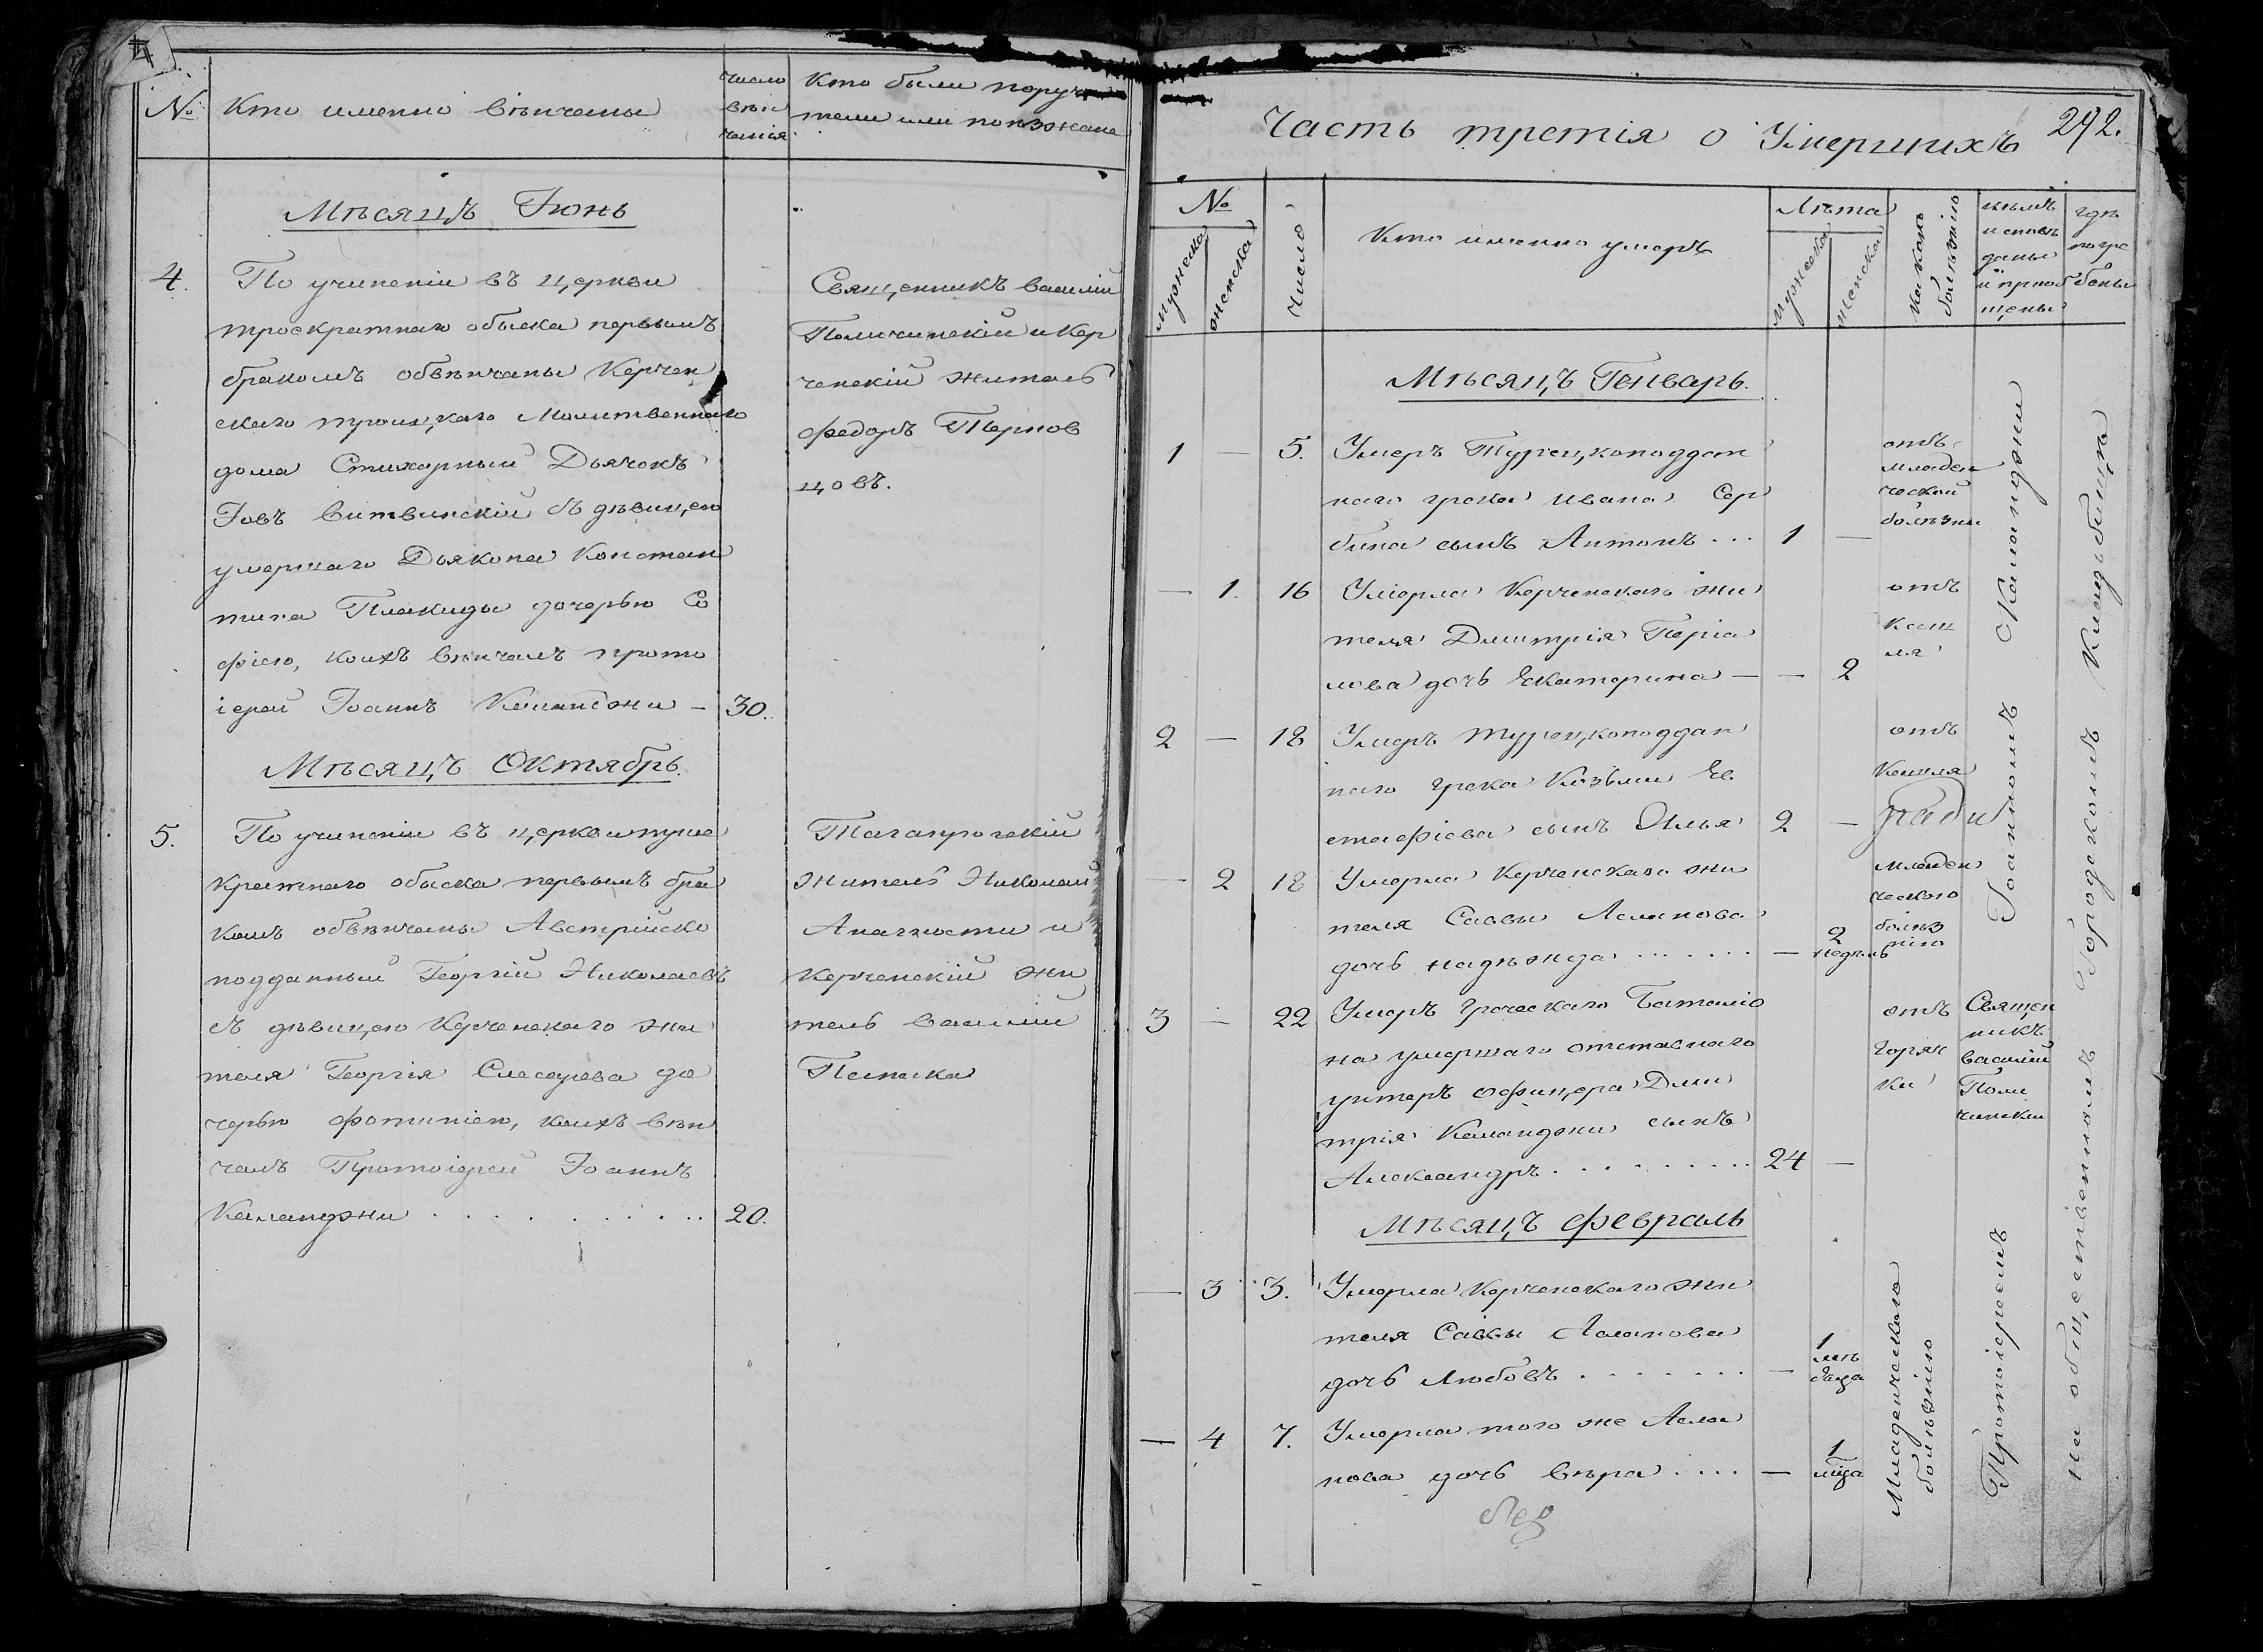 №
Кто именно вѣнчаны
число
вѣн
чанія
Кто были поручи
тели или поѣзжане
Мѣсяцъ Іюнь
4.
По учиненіи въ церкви
троекратнаго обыска первымъ
бракомъ обвѣнчаны Керчен
скаго троицкаго Молитвеннаго
дома Стихарный Дьячокъ
Іовъ Витвинскій съ дѣвицею
умершаго Дьякона Констан
тина Плакиды дочерью Со
фіею, коихъ вѣнчалъ прото
іерей Іоаннъ Каланджи — 30.
Священникъ Василій
Поличинскій и Кер
ченскій житель
Федоръ Терпов
цовъ.
Мѣсяцъ Октябрь.
5.
По учиненіи въ церкви трое
кратнаго обыска первымъ бра
комъ обвѣнчаны Австрійско
подданный Георгій Николаевъ
съ дѣвицею Керченскаго жи
теля Георгія Слесарева до
черью Фотиніею, коихъ вѣн
чалъ Протоіерей Іоаннъ
Каланджи . . . . . . . . . . 20.
Таганрогскій
житель Николай
Анагности и
Керченскій жи
тель Василій
292.
Часть третія о Умершихъ
№
мужеска
женска
Число
Кто именно умеръ
Лѣта
мужеска
женска
какою
болѣзнію
кѣмъ
исповѣ
даны
и приоб
щены
гдѣ
погре
бены
Мѣсяцъ Генварь.
1 — 5. Умеръ Турецкоподдан
наго грека Ивана Сер
бина сынъ Антонъ . . . 1 —
отъ
младен
ческой
болѣзни
— 1. 16 Умерла Керченскаго жи
теля Дмитрія Періа
лова дочь Екатерина — — 2
отъ
каш
ля
2 — 18 Умеръ турецкоподдан
наго грека Козьмы Ев
стафіева сынъ Илья 2 —
отъ
Кашля
— 2 18 Умерла Керченскаго жи
теля Саввы Асланова
дочь надѣжда . . . . . . — 2 недѣль
младен
ческою
болѣз
нію
3 — 22 Умеръ Греческаго Баталіо
на умершаго отставнаго
унтеръ офицера Дми
трія Каланджи сынъ
Александръ . . . . . . . . . 24 —
отъ
горяч
ки
Священ
никъ
Василій
Поли
чинскій
Мѣсяцъ Февраль
— 3 3. Умерла Керченскаго жи
теля Саввы Асланова
дочь Любовь . . . . . . . — 1
— 4 7. Умерла того же Асла
нова дочь Вѣра . . . . — 1 мца
Младенческою
болѣзнію
Протоіереемъ Іоанномъ Каланджи
На общественномъ Городскомъ Кладбищѣ